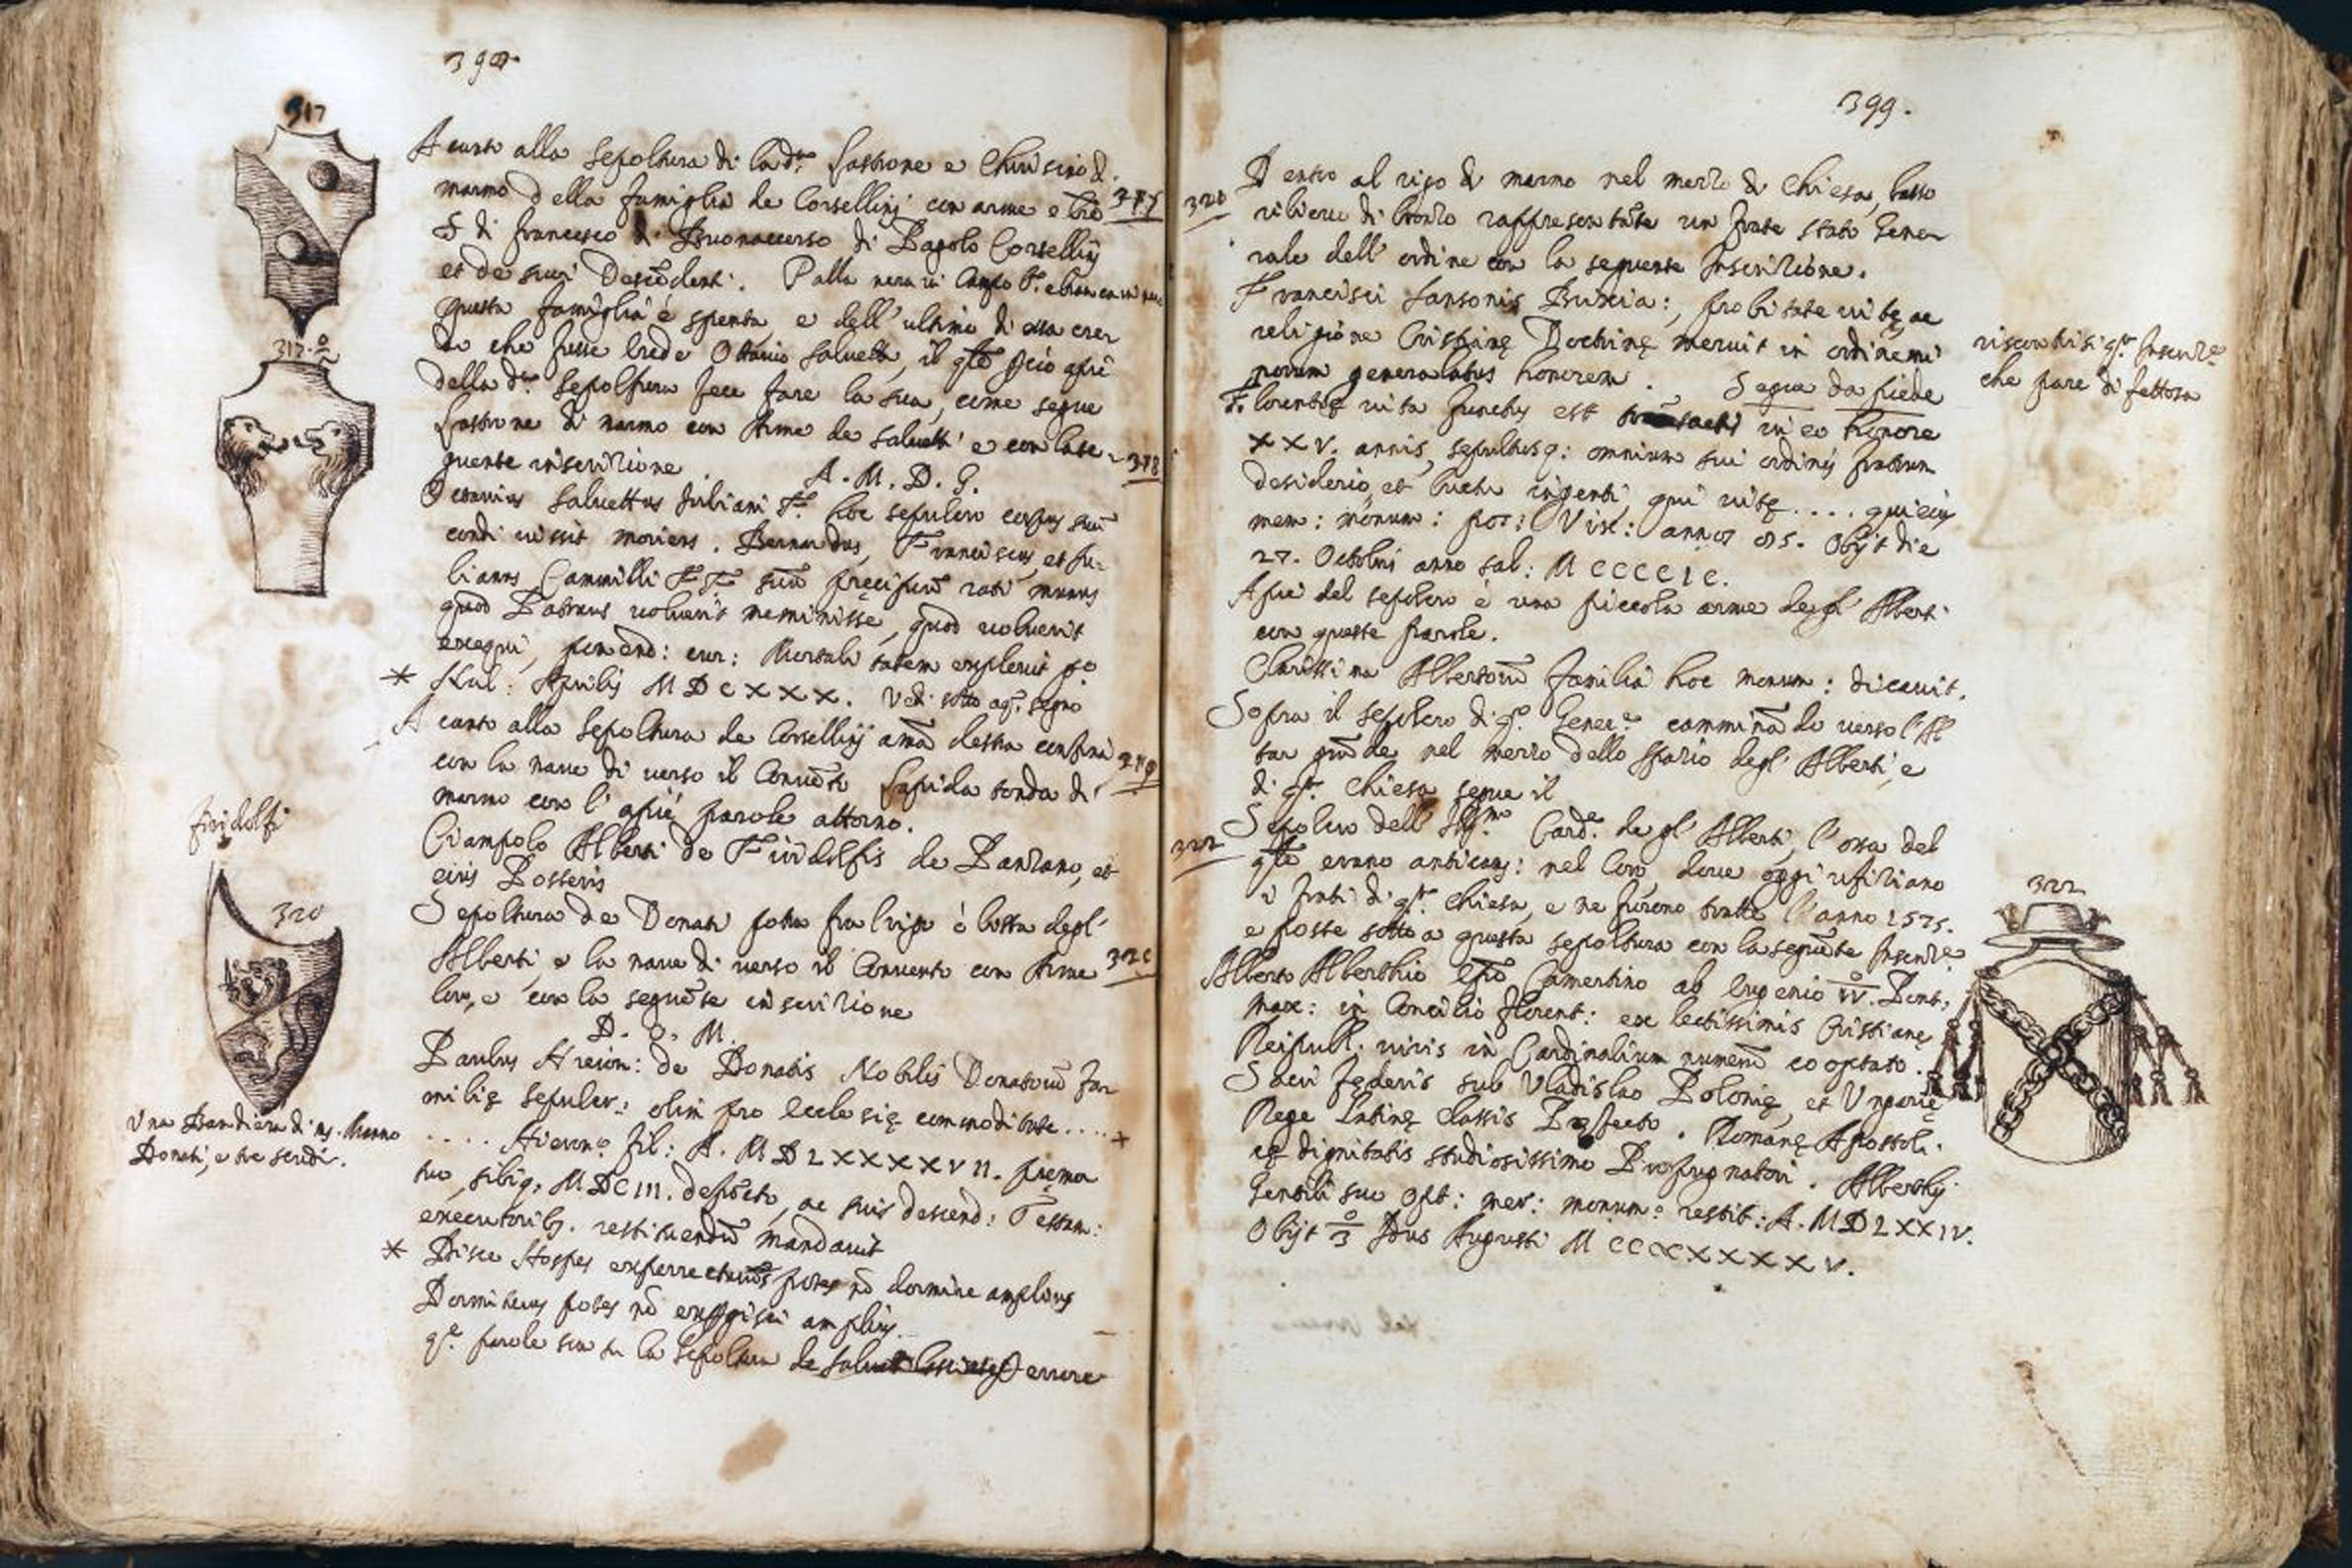 398.
317
A canto alla sepoltura di la d.ª lastrone e Chiusino di
marmo della famiglia de Corsellinj con arme e
S di francesco di Buonaccorso di Pagolo Corsellinj
et de suoi Descēdenti. Palla nera in Campo
questa famiglia è spenta, e dell' ultimo di essa cre
do che fusse erede Ottavio Salvetti, il q̄le
della d.ª sepoltura fece fare la sua, come segue
Lastrone di marmo con Arme de Salvetti e con la se
guente inscrizione
318
A. M. D. G.
Octavius Salvettus Juliani F. hoc sepulcro corpus suū
condi iussit moriens. Bernardus, Franciscus, et Ju-
lianus Cammilli FF. suū precipuū rati munus
quod Patruus voluerit meminisse, quod voluerit
exequi, ponend: cur: Mortali tatem explevit
* Kal: Aprilis MDCXXX. Vedi sotto aq.º segno
A canto alla sepoltura de Corsellinj a mā destra
con la nave di verso il Convēto Lapida tonda di
marmo con l'apiè parole attorno.
319
Ciampolo Alberti de Firidolfis de Panzano, et
eius Posteris
Sepoltura de Donati posta fra l'rigo è lotta degl'
Alberti, e la nave di verso il Convento con Arme
loro, e con la seguēte inscrizione
D. O. M.
Paulus Hieron: de Donatis Nobilis Donatorū fa
milię sepulcr: olim pro Ecclesię commoditate .... +
.... Hieron.º fil: A. MDLXXXXVII.
sibiq, MDCIII. ac suis descend: Testam:
executorib. restituendū mandavit
* Disce Hospes experrectus potes nō dormire amplius
Dormiturus potes nō expergisci amplius.
q.e parole son su la sepoltura de errore
317 0/2
firidolfi
320
Una Bandiera di mg. Manno
Donati, e tre scudi.
399.
Dentro al rigo di marmo nel mezzo di Chiesa, basso
rilievo di bronzo rappresentāte un frate stato Gene
rale dell' ordine con la seguente Inscrizione.
Francisci Sansonis Brixia:, probitate vitę ac
religione Cristianę Doctrinę meruit in ordine mi
norum generalatus honorem. Segue da piede
Florentię vita functus est in eo honore
XXV. annis, sepultusq: omnium sui ordinis fratrum
desiderio, et luctu ingenti, qui vitę .... qui eius
mem: monum: pos: Vix: annos 85. Obijt die
27. Octobri anno sal: MCCCCIC.
Apiè del sepolcro è una piccola arme degl' Alberti
con queste parole.
Clarissima Albertorū familia hoc monum: dicavit.
Sopra il sepolcro di q.º Gener.e camminādo verso l'Al
tar grāde nel mezzo dello spazio degl' Alberti, e
di q.ª Chiesa segue il
322
Sepolcro dell' Ill.mo Card.e degl' Alberti, l'ossa del
q̄le erano anticam: nel Coro dove oggi ufiziano
i frati di q.ª Chiesa, e ne furono tratte l'anno 1575.
e poste sotto a questa sepoltura con la seguēte Inscriz.e
Alberto Alberthio Camertino ab Eugenio IV. Pont.
max: in Concilio florent: ex lectissimis Cristianę
Reipubl. viris in Cardinalium numerū cooptato.
Sacri fęderis sub Vladislao Polonię, et Ungarię
Rege Latinę Classis Pręfecto. Romanę Apostoli
cę dignitatis studiosissimo Propugnatori. Alberthij
Gentili suo opt: mer: monum.º restit: A. MDLXXIV.
Obijt 0/3 Idus Augusti MCCCCXXXXV.
riscontrisi q.ª Inscriz.e
che pare difettosa
322